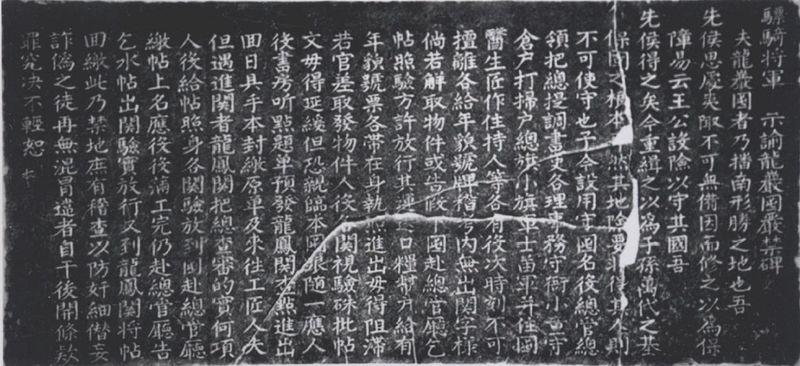 驃騎將軍　示諭龍巖囤嚴禁碑
夫龍巖囤者乃播南形勝之地也吾
先侯思慮夷陬不可無備因而修之以為保
障易云王公設險以守其國吾
先侯得之矣今重緝之以為子孫萬代之基
保固之　　然其地險要非得其人則
不可使守也予今設用守囤名役總管總
領把總提調書吏各理事務守衙小童守
倉戶打掃戶總旗小旗軍士苗軍并住囤
醫生匠作住持人等各有役次時刻不可
擅離各給年貌號牌稽考內無出關字樣
倘若解取物件或告假下囤赴總管廳乞
帖照驗方許放行其運　口糧　戶給有
年貌號票各帶在身執照進出毋得阻滯
若官差取發物件人役　關視驗硃批帖
文毋得延緩但恐親臨本囤跟隨一應人
後書房听點題單預發龍鳳關查點進出
回日具手本封繳原單及來往工匠人夫
但遇進關者龍鳳關把總查審的實何項
人後給帖照身各關驗放到囤赴總管廳
繳帖上名應役役滿工完仍赴總管廳告
乞水帖出關驗實放行又到龍鳳關將帖
回繳此乃禁地庶有稽查以防奸細僭妄
詐偽之徒再無混冒違者自干後開條款
罪究決不輕恕